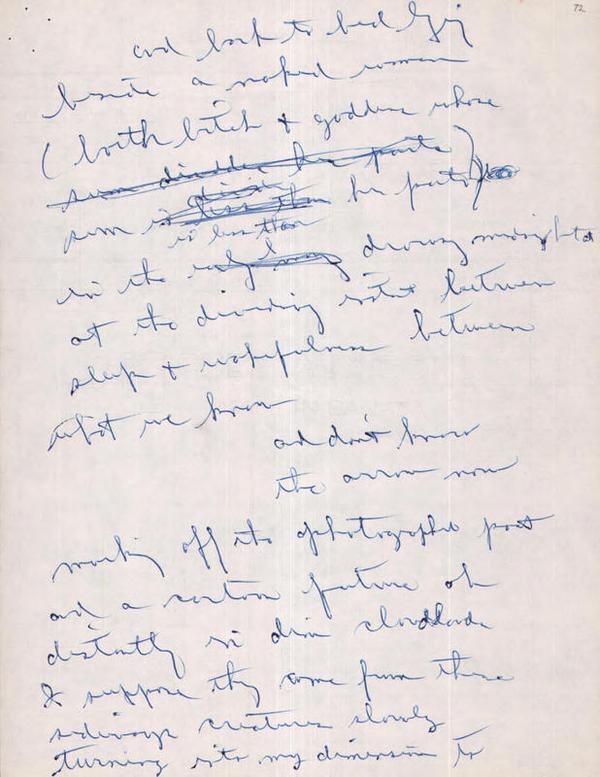 72
and back to bed lying
beside a naked woman
(both bitch & goddess whose
sum divides her parts)
sum is less than her parts)
is less than
in the drowsy midnight
at the dividing instant between
sleep & wakefulness between
what we know
and don't know
the arrow now
marking off its photographic past
and a certain future oh
distantly in dim clouds
I suppose they come from there
sideways creatures slowly
turning into my dimension to